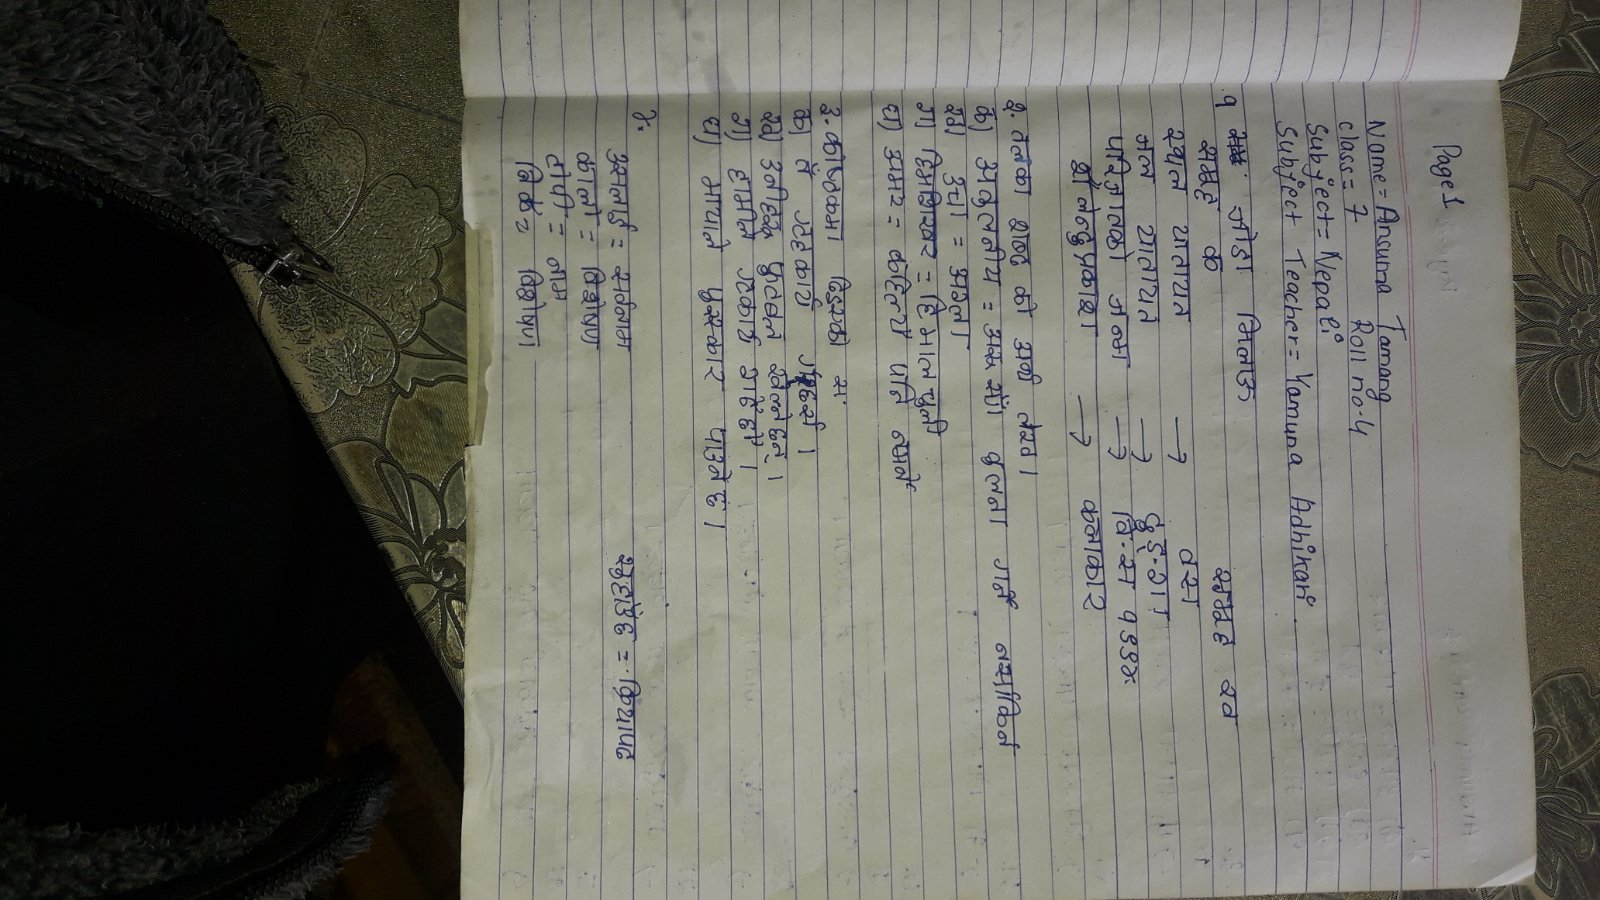 Page 1
Name = Ansuma Tamang
class = 7 Roll no. 4
Subject = Nepali
Subject Teacher = Yamuna Adhikari
१ जोडा मिलाऊ
समूह क समूह ख
स्थल यातायात → बस
जल यातायात → डुङ्गा
पारिजातको जन्म → वि.सं १९९४
श्रीलेन्दुप्रकाश → कलाकार
२. तलका शब्द को अर्थ लेख।
क) अतुलनीय = अरू सँग तुलना गर्न नसकिने
ख) उग्रा = अग्लो
ग) हिमशिखर = हिमाल चुली
घ) अमर = कहिल्यै पनि नमर्ने
३. कोष्ठकमा दिइएको
क) ते गृहकार्य गर्छस्।
ख) उनीहरू फुटबल खेल्छन्।
ग) हामीले गृहकार्य गर्छौं।
घ) भाग्यले पुरस्कार पाउने छ।
४.
ऊलाई = सर्वनाम रमाउँछ = क्रियापद
कालो = विशेषण
टोपी = नाम
निकै = विशेषण